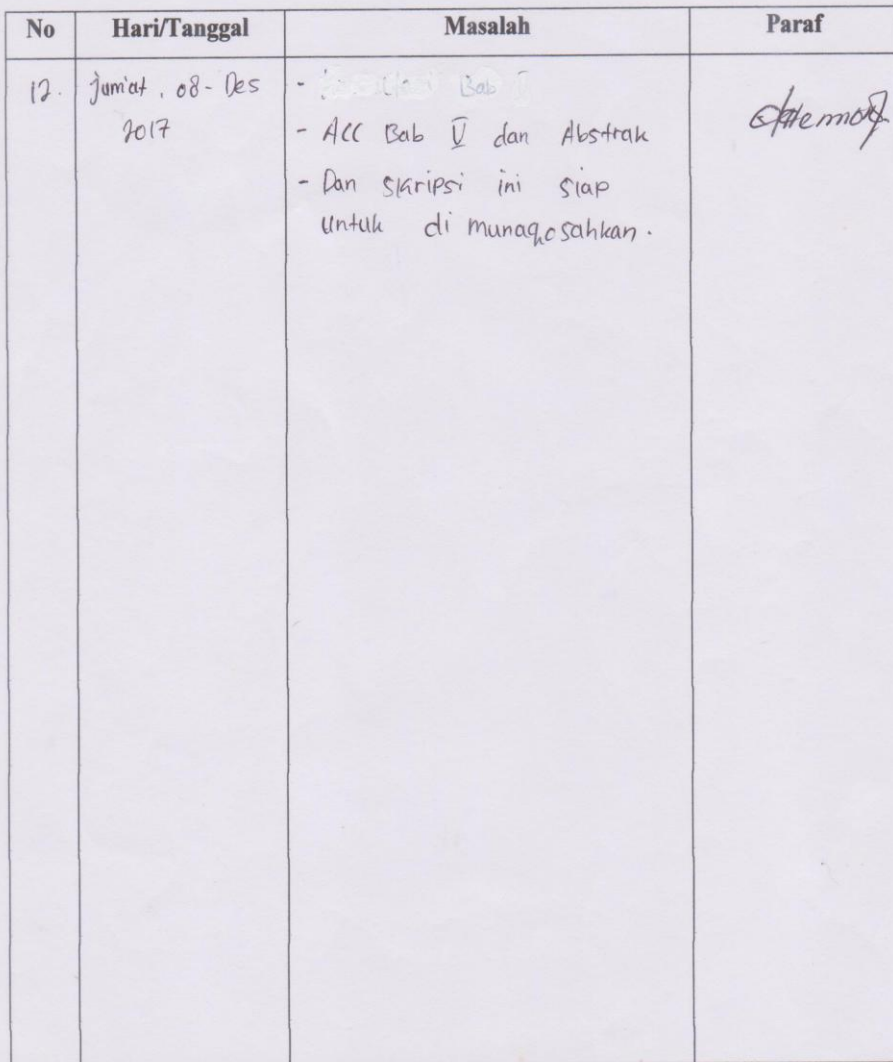 No Hari/Tanggal Masalah Paraf
12. Jum'at, 08 - Des - Bab
2017 - ACC Bab V dan Abstrak
- Dan skripsi ini siap
untuk di munaqosahkan.